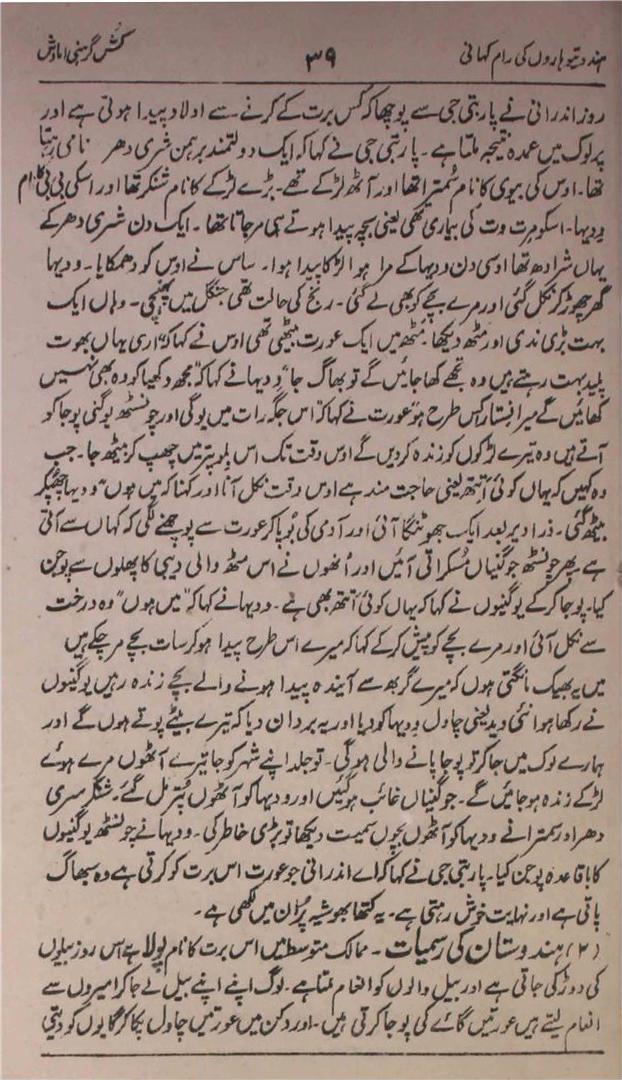 ہندو تیوہاروں کی رام کہانی ۳۹ کُش گرہنی اماوش
روز اندرانی نے پاربتی جی سے پوچھا کہ کس برت کے کرنے سے اولاد پیدا ہوتی ہے اور
پرلوک میں عمدہ نتیجہ ملتا ہے۔ پاربتی جی نے کہا کہ ایک دولتمند برہمن شری دھر نامی رہتا
تھا۔ اوس کی بیوی کا نام سُمترا تھا اور آٹھ لڑکے تھے۔ بڑے لڑکے کا نام شنکر تھا اور اسکی بی بی کا نام
ودیہا۔ اسکو مرت وت کی بیماری تھی یعنی بچہ پیدا ہوتے ہی مر جاتا تھا۔ ایک دن شری دھر کے
یہاں شرادھ تھا اوسی دن ودیہا کے مرا ہوا لڑکا پیدا ہوا۔ ساس نے اوس کو دھمکایا۔ ودیہا
گھر چھوڑ کر نکل گئی اور مرے بچے کو بھی لے گئی۔ رنج کی حالت تھی جنگل میں پہنچی۔ وہاں ایک
بہت بڑی ندی اور مٹھ دیکھا۔ مٹھ میں ایک عورت بیٹھی تھی اوس نے کہا کہ "اری یہاں بھوت
پلید بہت رہتے ہیں وہ تجھے کھا جائیں گے تو بھاگ جا" ودیہا نے کہا کہ "مجھ دکھیا کو وہ بھی نہیں
کھائیں گے میرا نستار کس طرح ہو" عورت نے کہا کہ "اس جگہ رات میں یوگی اور چونسٹھ یوگنی پوجا کو
آتے ہیں وہ تیرے لڑکوں کو زندہ کر دیں گے اوس وقت تک اس بلو پتر میں چھپ کر بیٹھ جا۔ جب
وہ کہیں کہ یہاں کوئی اتتھ یعنی حاجت مند ہے اوس وقت نکل آنا اور کہنا کہ میں ہوں" ودیہا چھپکر
بیٹھ گئی۔ ذرا دیر بعد ایک جھوٹنگا آئی اور آدمی کی بو پا کر عورت سے پوچھنے لگی کہ کہاں سے آتی
ہے پھر چونسٹھ جوگنیاں مسکراتی آئیں اور اُنھوں نے اس مٹھ والی دیبی کا پھلوں سے پوجن
کیا۔ پوجا کر کے یوگنیوں نے کہا کہ یہاں کوئی اتتھ بھی ہے۔ ودیہا نے کہا کہ "میں ہوں" وہ درخت
سے نکل آئی اور مرے بچے کو پیش کر کے کہا کہ میرے اس طرح پیدا ہو کر سات بچے مر چکے ہیں
میں یہ بھیک مانگتی ہوں کہ میرے گربھ سے آیندہ پیدا ہونے والے بچے زندہ رہیں یوگنیوں
نے رکھا ہوا نئی وید یعنی چاول ودیہا کو دیا اور یہ بردان دیا کہ تیرے بیٹے پوتے ہوں گے اور
ہمارے لوک میں جا کر تو پوجا پانے والی ہو گی۔ تو جلد اپنے شہر کو جا تیرے آٹھوں مرے ہوئے
لڑکے زندہ ہو جائیں گے۔ جوگنیاں غائب ہو گئیں اور ودیہا کو آٹھوں پُتر مل گئے۔ شنکر سری
دھر اور سمترا نے ودیہا کو آٹھوں بچوں سمیت دیکھا تو بڑی خاطر کی۔ ودیہا نے چونسٹھ یوگنیوں
کا باقاعدہ پوجن کیا۔ پاربتی جی نے کہا کہ اے اندرانی جو عورت اس برت کو کرتی ہے وہ سبھاگ
پاتی ہے اور نہایت خوش رہتی ہے۔ یہ کتھا بھوشیہ پران میں لکھی ہے۔
(۲) ہندوستان کی رسمیات۔ ممالک متوسط میں اس برت کا نام پولا ہے اس روز بیلوں
کی دوڑ کی جاتی ہے اور بیل والوں کو انعام ملتا ہے۔ لوگ اپنے اپنے بیل لے جا کر امیروں سے
انعام لیتے ہیں عورتیں گائے کی پوجا کرتی ہیں۔ اور دکن میں عورتیں چاول پکا کر گایوں کو دیتی